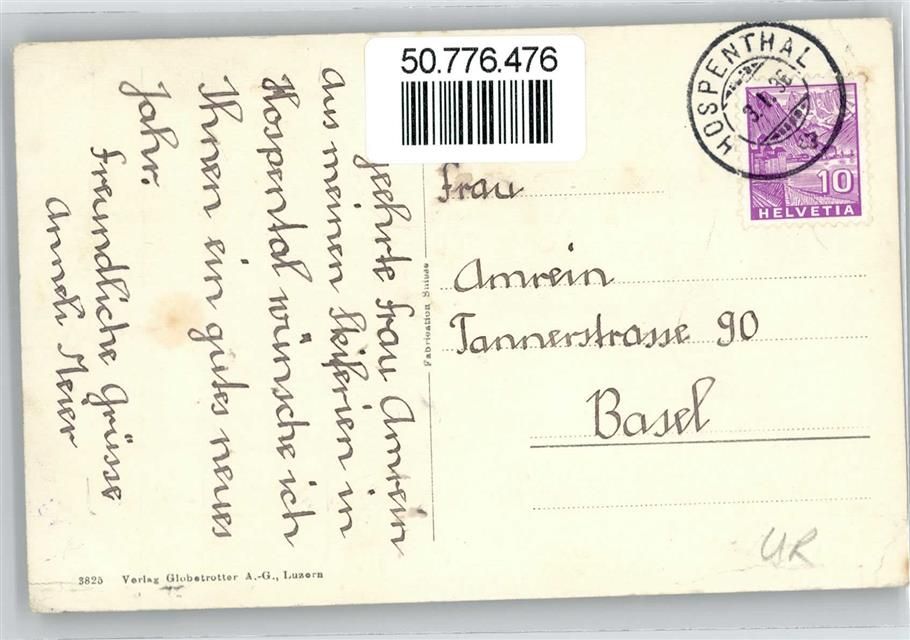 50.776.476
geehrte Frau Amrein
aus meinen Skiferien in
Hospental wünsche ich
Ihnen ein gutes neues
Jahr.
Freundliche Grüsse
Meier
Fabrication Suisse
3825 Verlag Globetrotter A.-G., Luzern
HOSPENTHAL
10
HELVETIA
Frau
Amrein
Tannerstrasse 90
Basel
UR